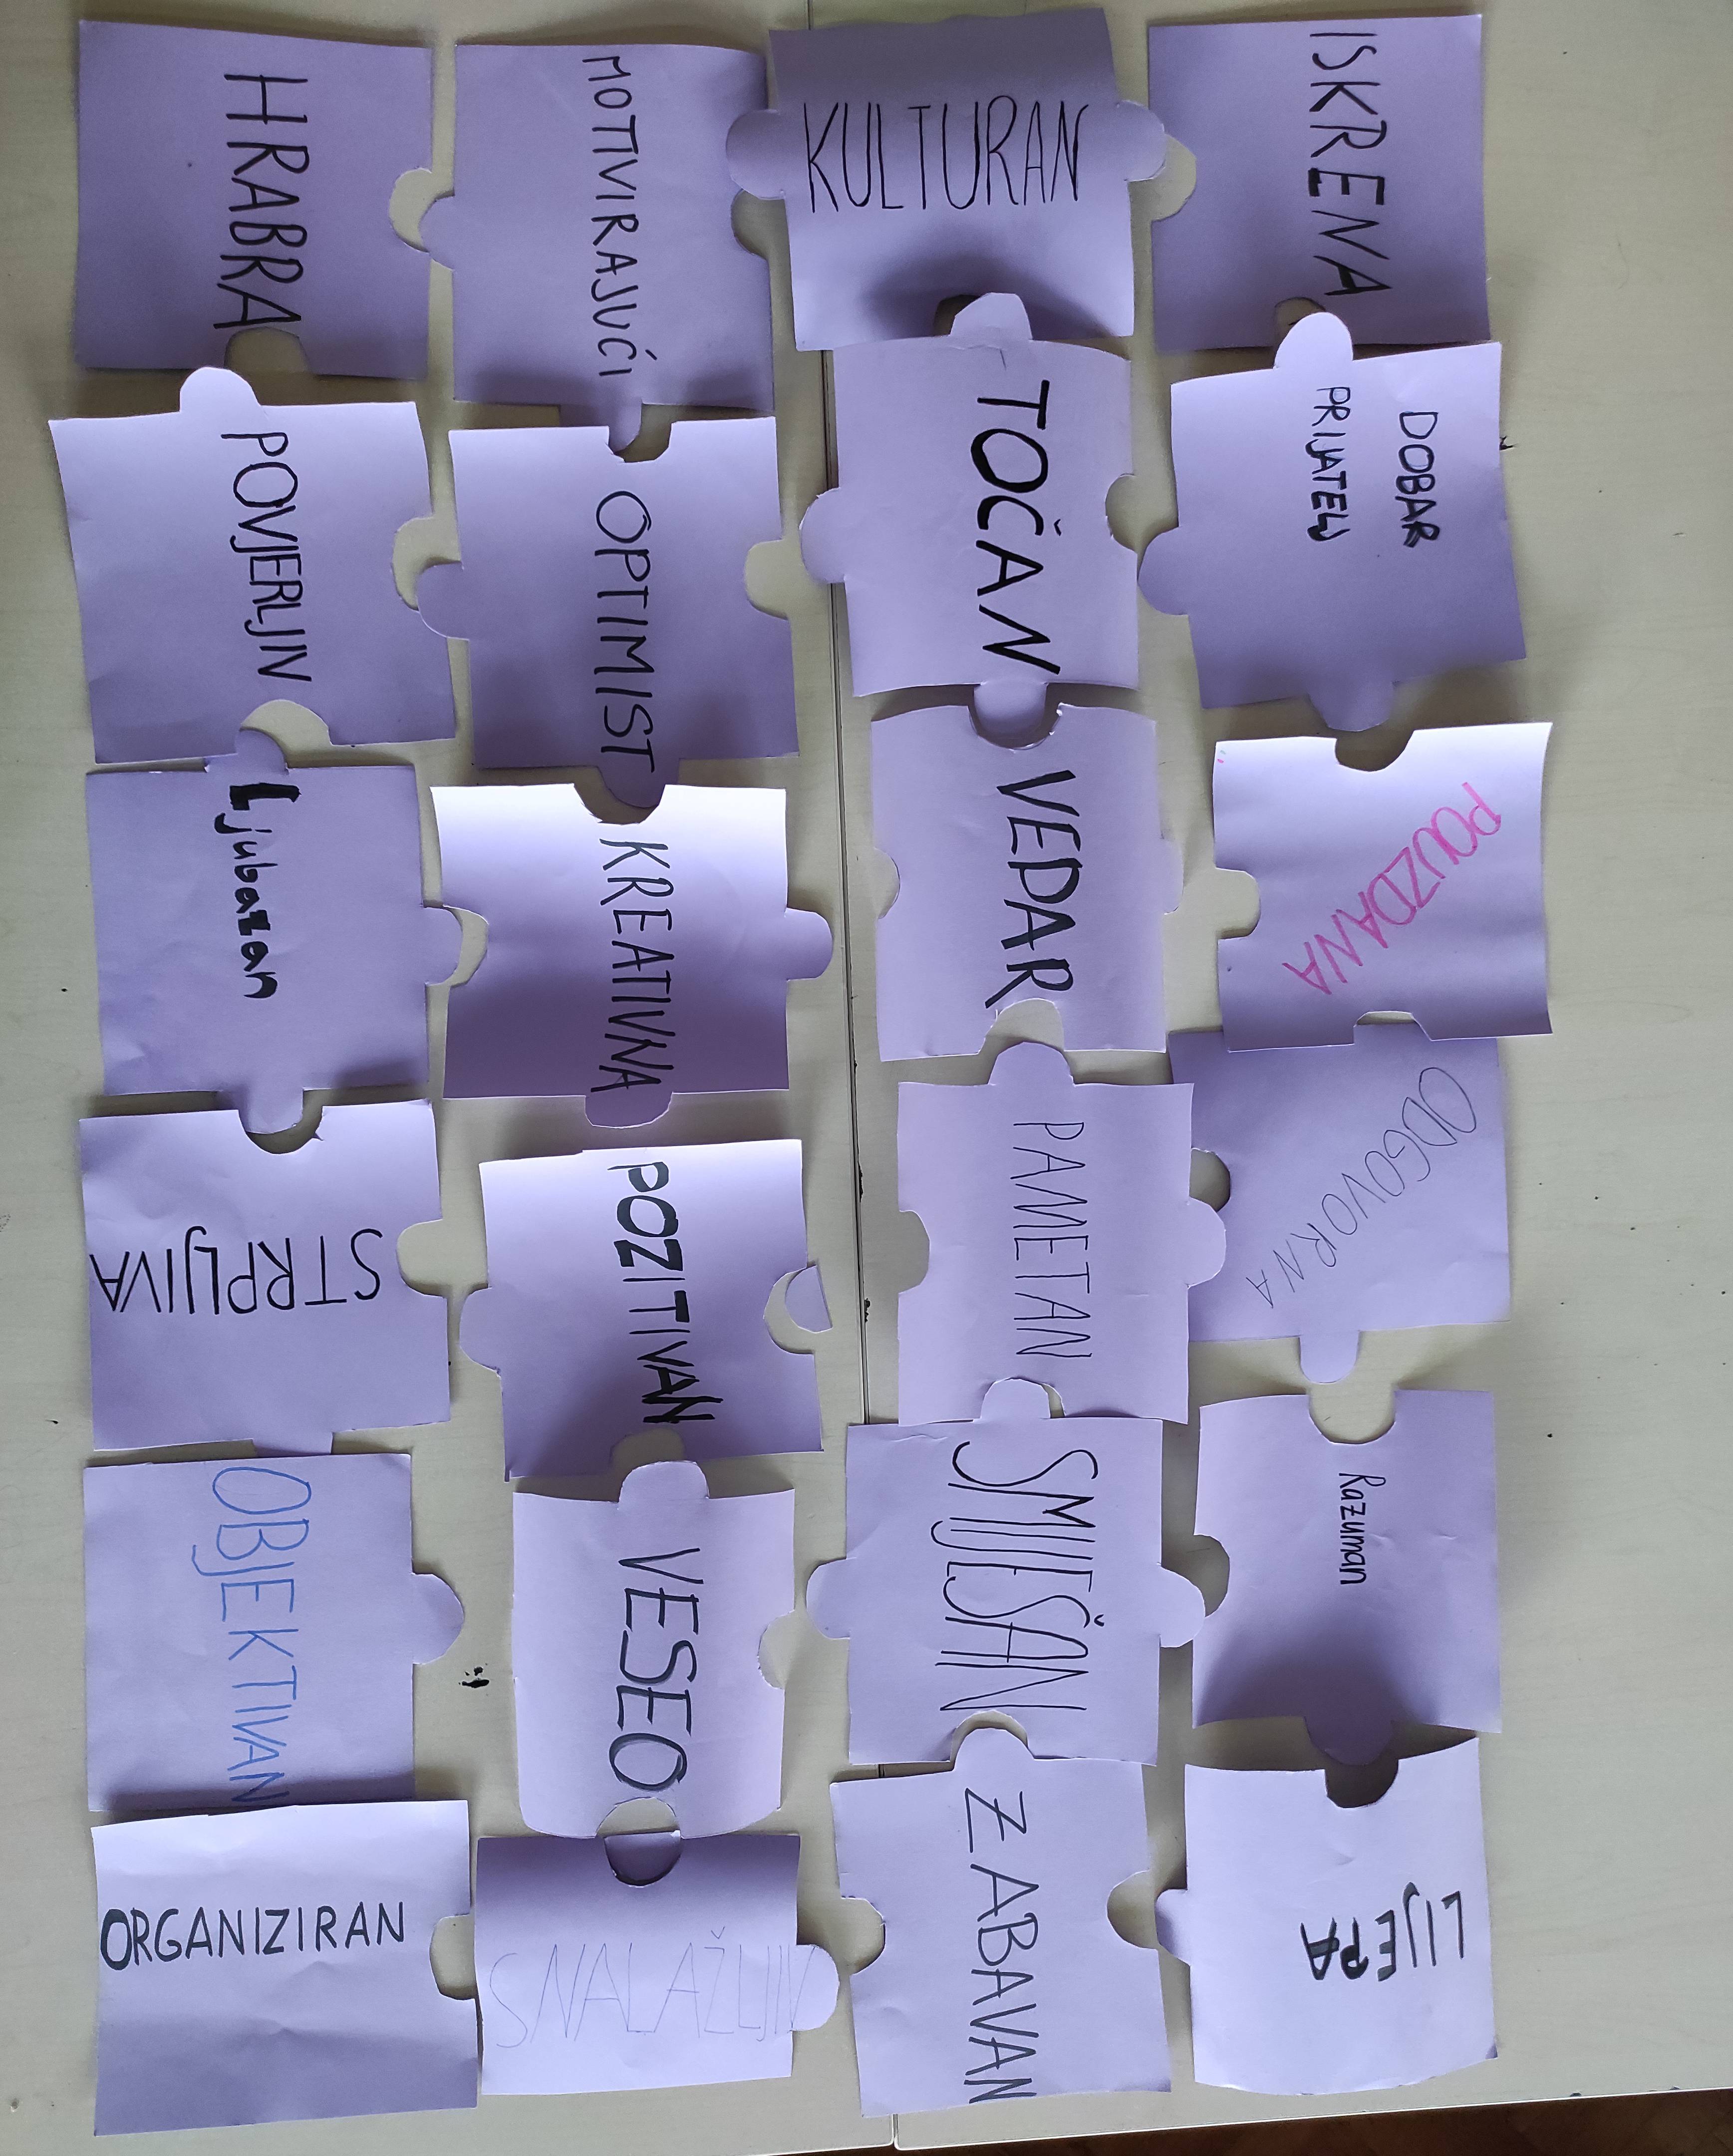 HRABRA
MOTIVIRAJUĆI
KULTURAN
ISKRENA
POVJERLJIV
OPTIMIST
TOČAN
DOBAR
PRIJATELJ
Ljubazan
KREATIVNA
VEDAR
POUZDANA
STRPLJIVA
POZITIVAN
PAMETAN
ODGOVORNA
OBJEKTIVAN
VESEO
SMIJEŠAN
Razuman
ORGANIZIRAN
SNALAŽLJIV
ZABAVAN
LIJEPA